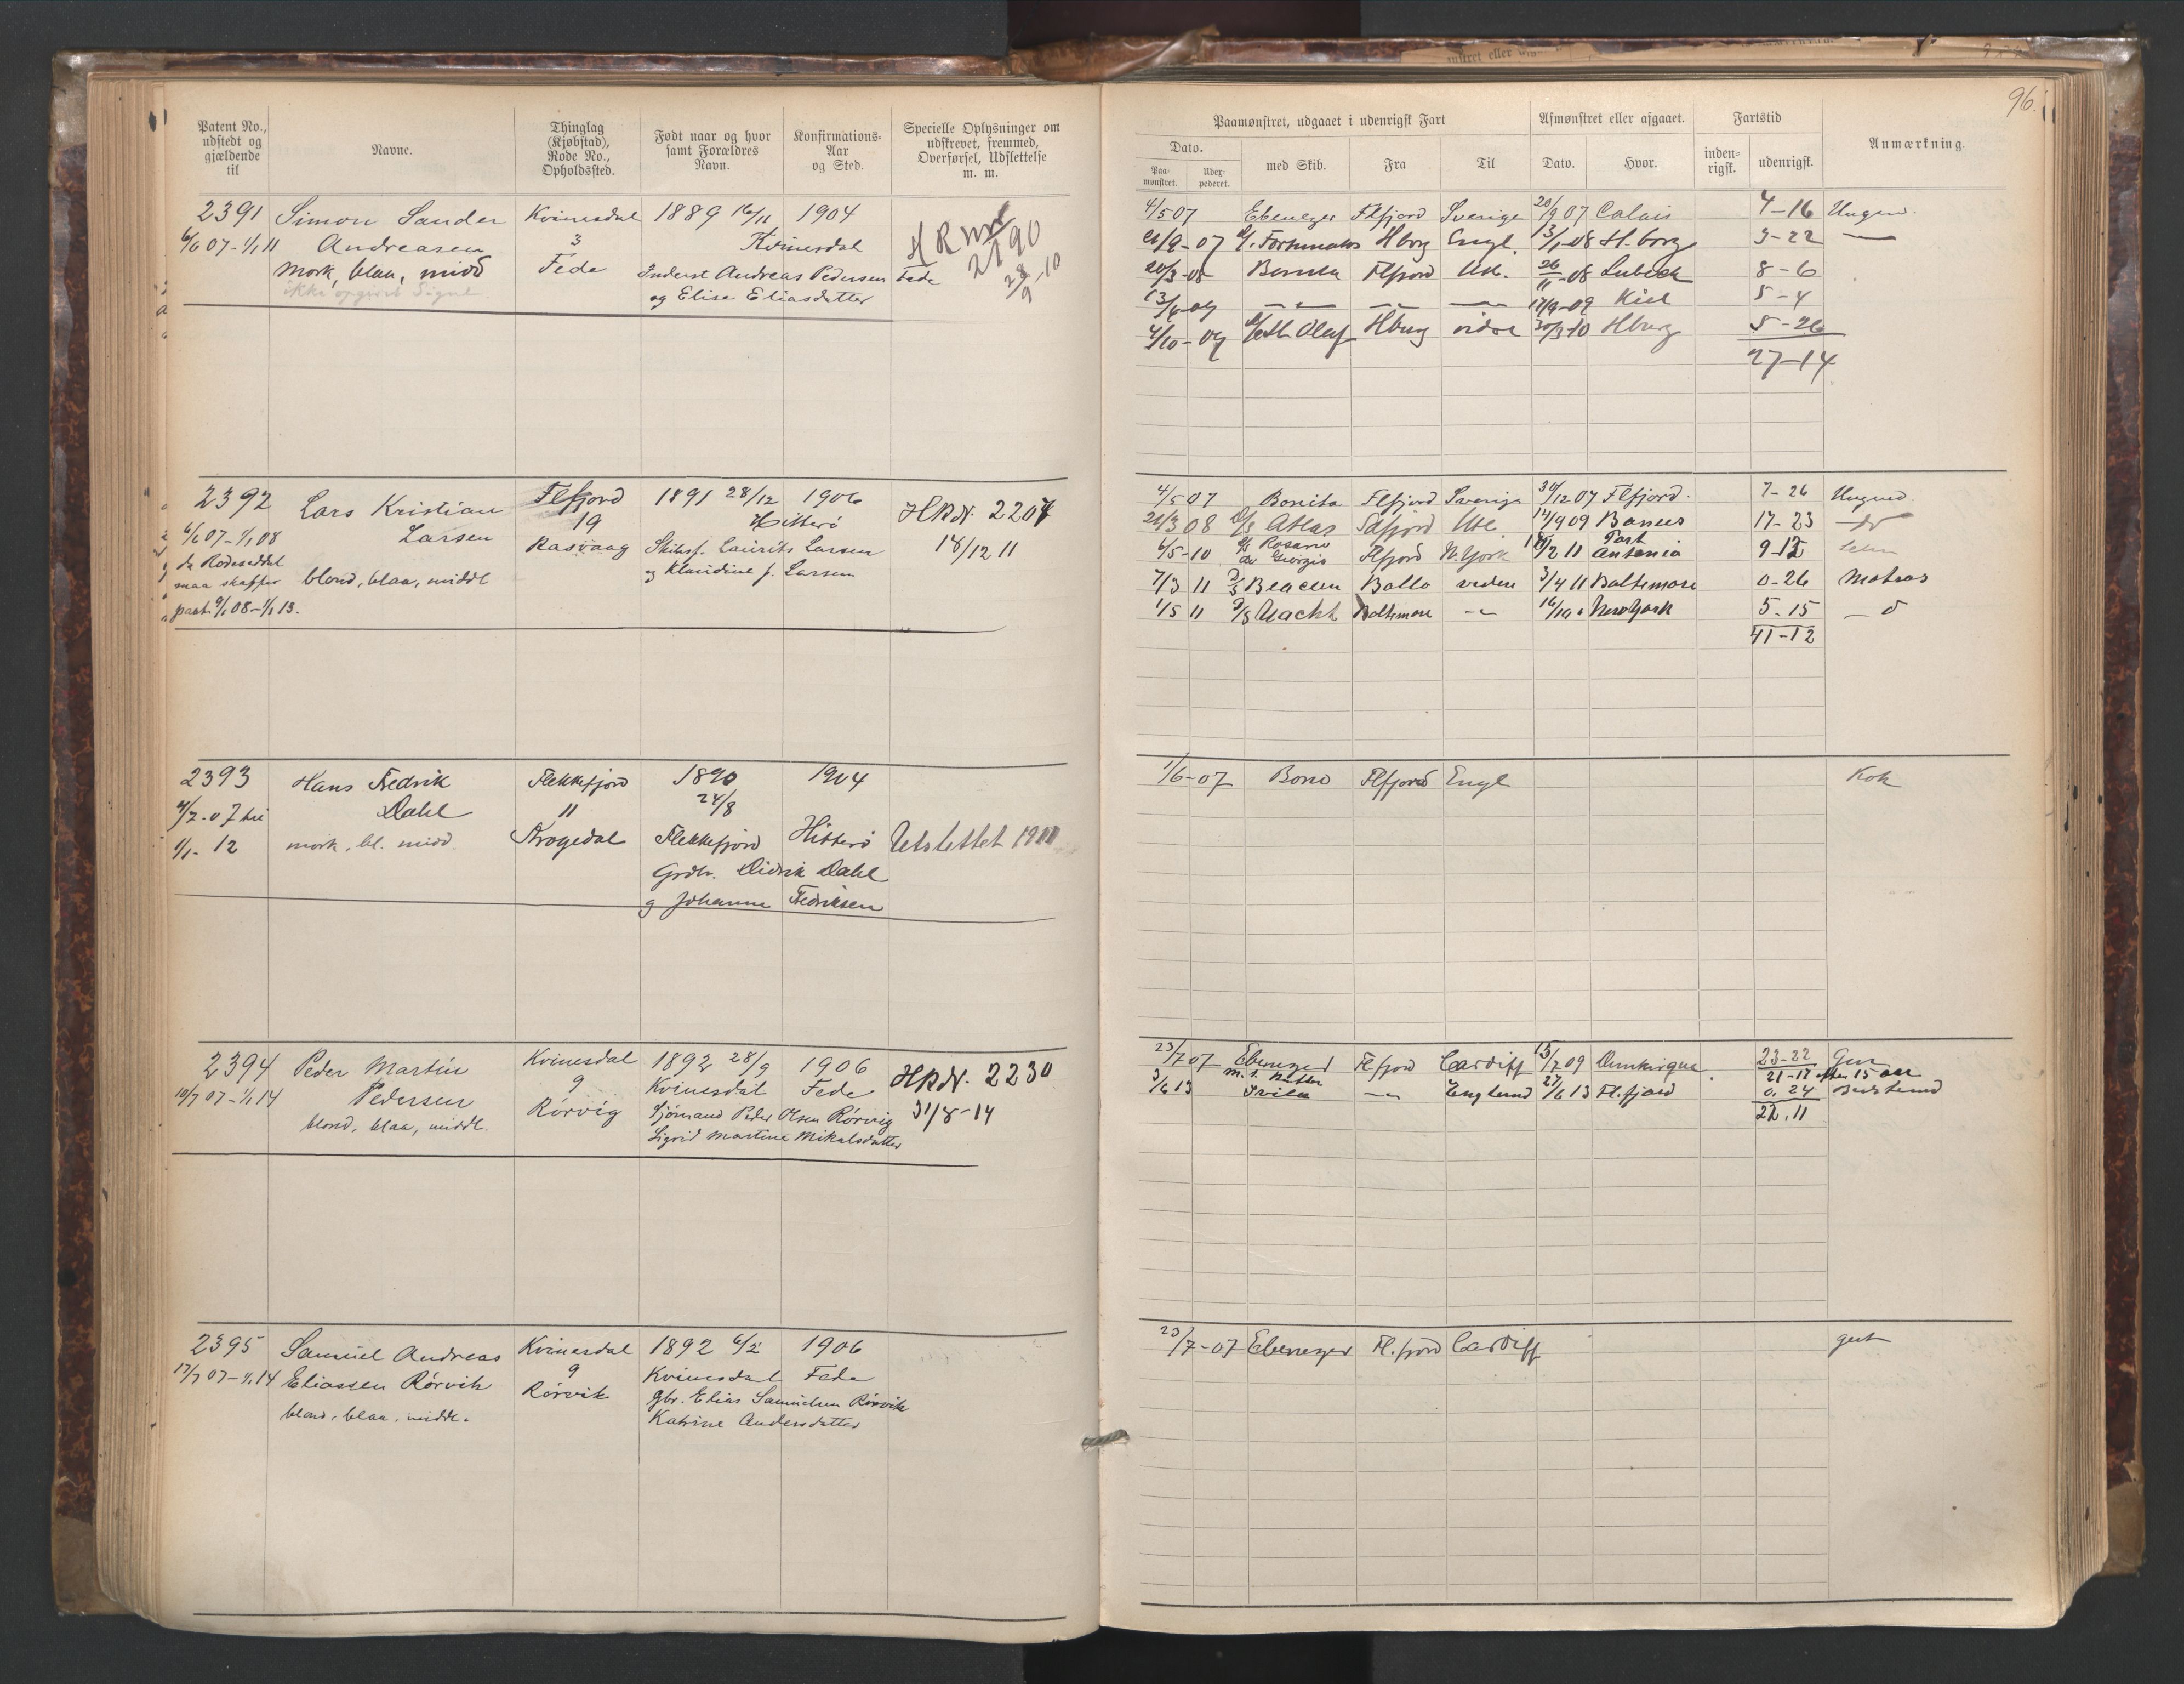 96.
Patent No., udstedt og gjældende til
Navne.
Thinglag (Kjøbstad), Rode No., Opholdssted.
Født naar og hvor samt Forældres Navn.
Konfirmations-Aar og Sted.
Specielle Oplysninger om udskrevet, fremmed, Overførsel, Udslettelse m. m.
Paamønstret, udgaaet i udenrigsk Fart
Afmønstret eller afgaaet.
Fartstid
Anmærkning.
Dato.
Paa-mønstret.
Udex-pederet.
med Skib.
Fra
Til
Dato.
Hvor.
inden-rigsk.
udenrigsk.
2391 Simon Sander Kvinesdal 1889 16/11 1904
6/6 07 - 1/1 11 Andreasen 3 Kvinesdal
Mørk, blaa, midd Fede Inderst Andreas Pedersen Fede
og Elise Eliasdatter
2190
28/9-10
4/5 07 Ebenezer Flfjord Sverige 20/9 07 Calais 4-16 Ungmd.
21/9-07 Hborg Engl. 13/1-08 H.borg 3-22 —
20/3-08 Bonita Flfjord Usl. 26/11-08 Lubeck 8-6
13/4-09 17/9-09 Kiel 5-4
4/10-09 Hburg vidre 30/3 10 Hburg 5-26
27-14
2392 Lars Kristian Flfjord 1891 28/12 1906 HRN. 2207
6/6 07 - 1/1 08 Larsen 19 Hitterø 18/12 11
Rodeseddel Rasvaag Skibsf. Laurits Larsen
maa skaffes blond, blaa, middl og Klaudine f. Larsen
paat. 9/1 08 - 1/1 13.
4/5 07 Bonita Flfjord Sverige 30/12 07 Flfjord. 7-26 Ungmd.
21/3 08 Atlas Usl. 14/9 09 17-23
4/5-10 Rosario Flfjord N.York 2 11 Port Antonio 9-12
7/3 11 Beacon Balto vidre 3/4 11 Baltimore 0-26 Matros
4/5 11 Yacht Baltimore New York 5-15
41-12
2393 Hans Fredrik Flekkefjord 1890 1904
4/7-07 til Dahl 11 24/8
1/1-12 mørk, bl. midd. Trogedal Flekkefjord Hitterø Utslettet
Grdbr. Didrik Dahl
og Johanne Fredriksen
1/6-07 Bono Flfjord Engl Kok
2394 Peder Martin Kvinesdal 1892 28/9 1906 HRN. 2230
10/7 07 - 1/1 14 Pedersen 9 Kvinesdal Fede 31/8-14
blond, blaa, middl. Rørvig Sjömand Peder Olsen Rørvig
Sigrid Martine Mikalsdatter
23/7 07 Ebenezer Flfjord Cardiff 15/7 09 Dunkirque 23-22 Gut
21-17 efter 15 aar
3/6 13 Svilea England 27/6 13 Fl.fjord 0.24 Bedstemd
22.11
2395 Samuel Andreas Kvinesdal 1892 6/2 1906
17/7 07 - 1/1 14 Eliassen Rørvik 9 Kvinesdal Feda
blond, blaa, middl. Rørvik Gbr. Elias Samuelsen Rørvik
Katrine Andersdatter
23/7-07 Ebenezer Fl.fjord Cardiff gut